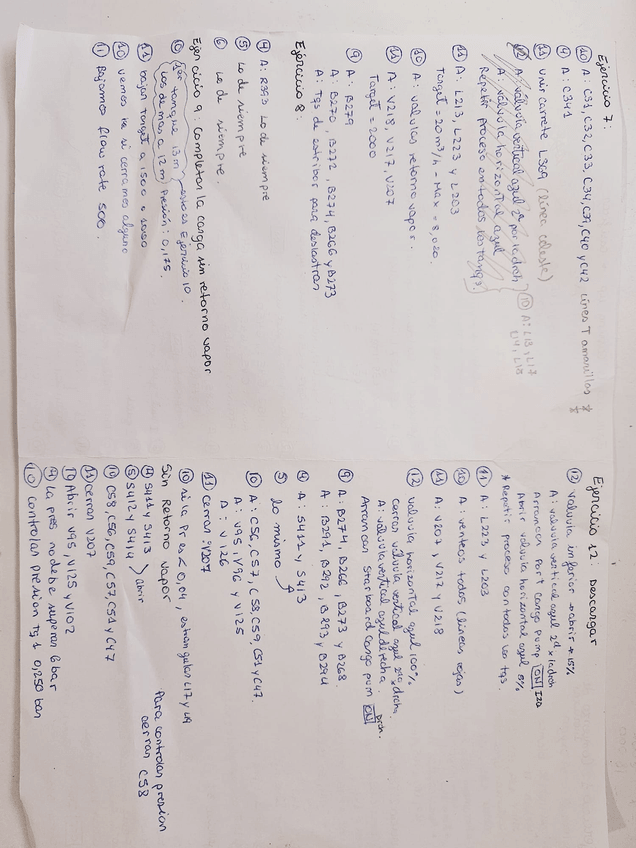 Ejercicio 7:
⑩ A: C31, C32, C33, C34, C71, C40 y C42 Lines T amarillas *
⑨ A: C341
⑪ Unir carrete L309 (línea celeste)
⑫ A válvula vertical azul 2ª por la drch
A válvula horizontal azul
Repetir proceso en todos los tanqs
⑩ A: L13, L17
L14, L18
⑪ A: L213, L223 y L203
Target = 20 m³/h - Max = 8,020.
⑩ A: valvulas retorno vapor.
⑪ A: V218, V217, V207
Target = 2000
⑨ A: B279
A: B270, B272, B274, B266 y B273
A: Tqs de estribor para deslastrar
Ejercicio 8:
④ A: R393 lo de siempre
⑤ Lo de siempre
⑥ Lo de siempre.
Ejercicio 9: Completar la carga sin retorno vapor
⑩ 1er tanque 13 m
Los demas a 12 m
esto es Ejercicio 10.
Presión: 0,175.
⑪ bajar target a 1500 o 1000
⑩ vemos re si cerramos alguno
⑪ Bajamos flow rate 500.
Ejercicio 12: Descargar
⑫ Valvula inferior → abrir → 15%
A: valvula vertical azul 2ª x la drch
Arrancar Port Cargo Pump ON Izq
Abrir valvula horizontal azul 5%
* Repetir proceso con todos los tqs.
⑪ A: L223 y L203
⑩ A: venteos todos (lineas rojas)
⑪ A: V207, V217 y V218
⑫ Valvula horizontal azul 100%
cerrar valvula vertical azul 2ª x drcha.
A: valvula vertical azul derecha.
Arrancar Starboard Cargo pum ON Drch.
⑨ A: B274, B266, B273 y B268.
A: B291, B292, B293 y B294
④ A: S411 y S413
⑤ lo mismo
⑩ A: C56, C57, C58 C59, C51 y C47.
A: V95, V96 y V125
A: V126
⑪ cerrar: V207
⑩ si la Pr es < 0,04, estrangular L17 y L19
Sin Retorno vapor
④ S411 y S413
⑤ S412 y S414
abrir
Para controlar presion
cerrar C58
⑩ C58, C56, C59, C57, C51 y C47
⑪ cerrar V207
⑭ Abrir V95, V125 y V102
④ La pres no debe superar 6 bar
⑩ Controlar presion Tq 1 0,250 bar